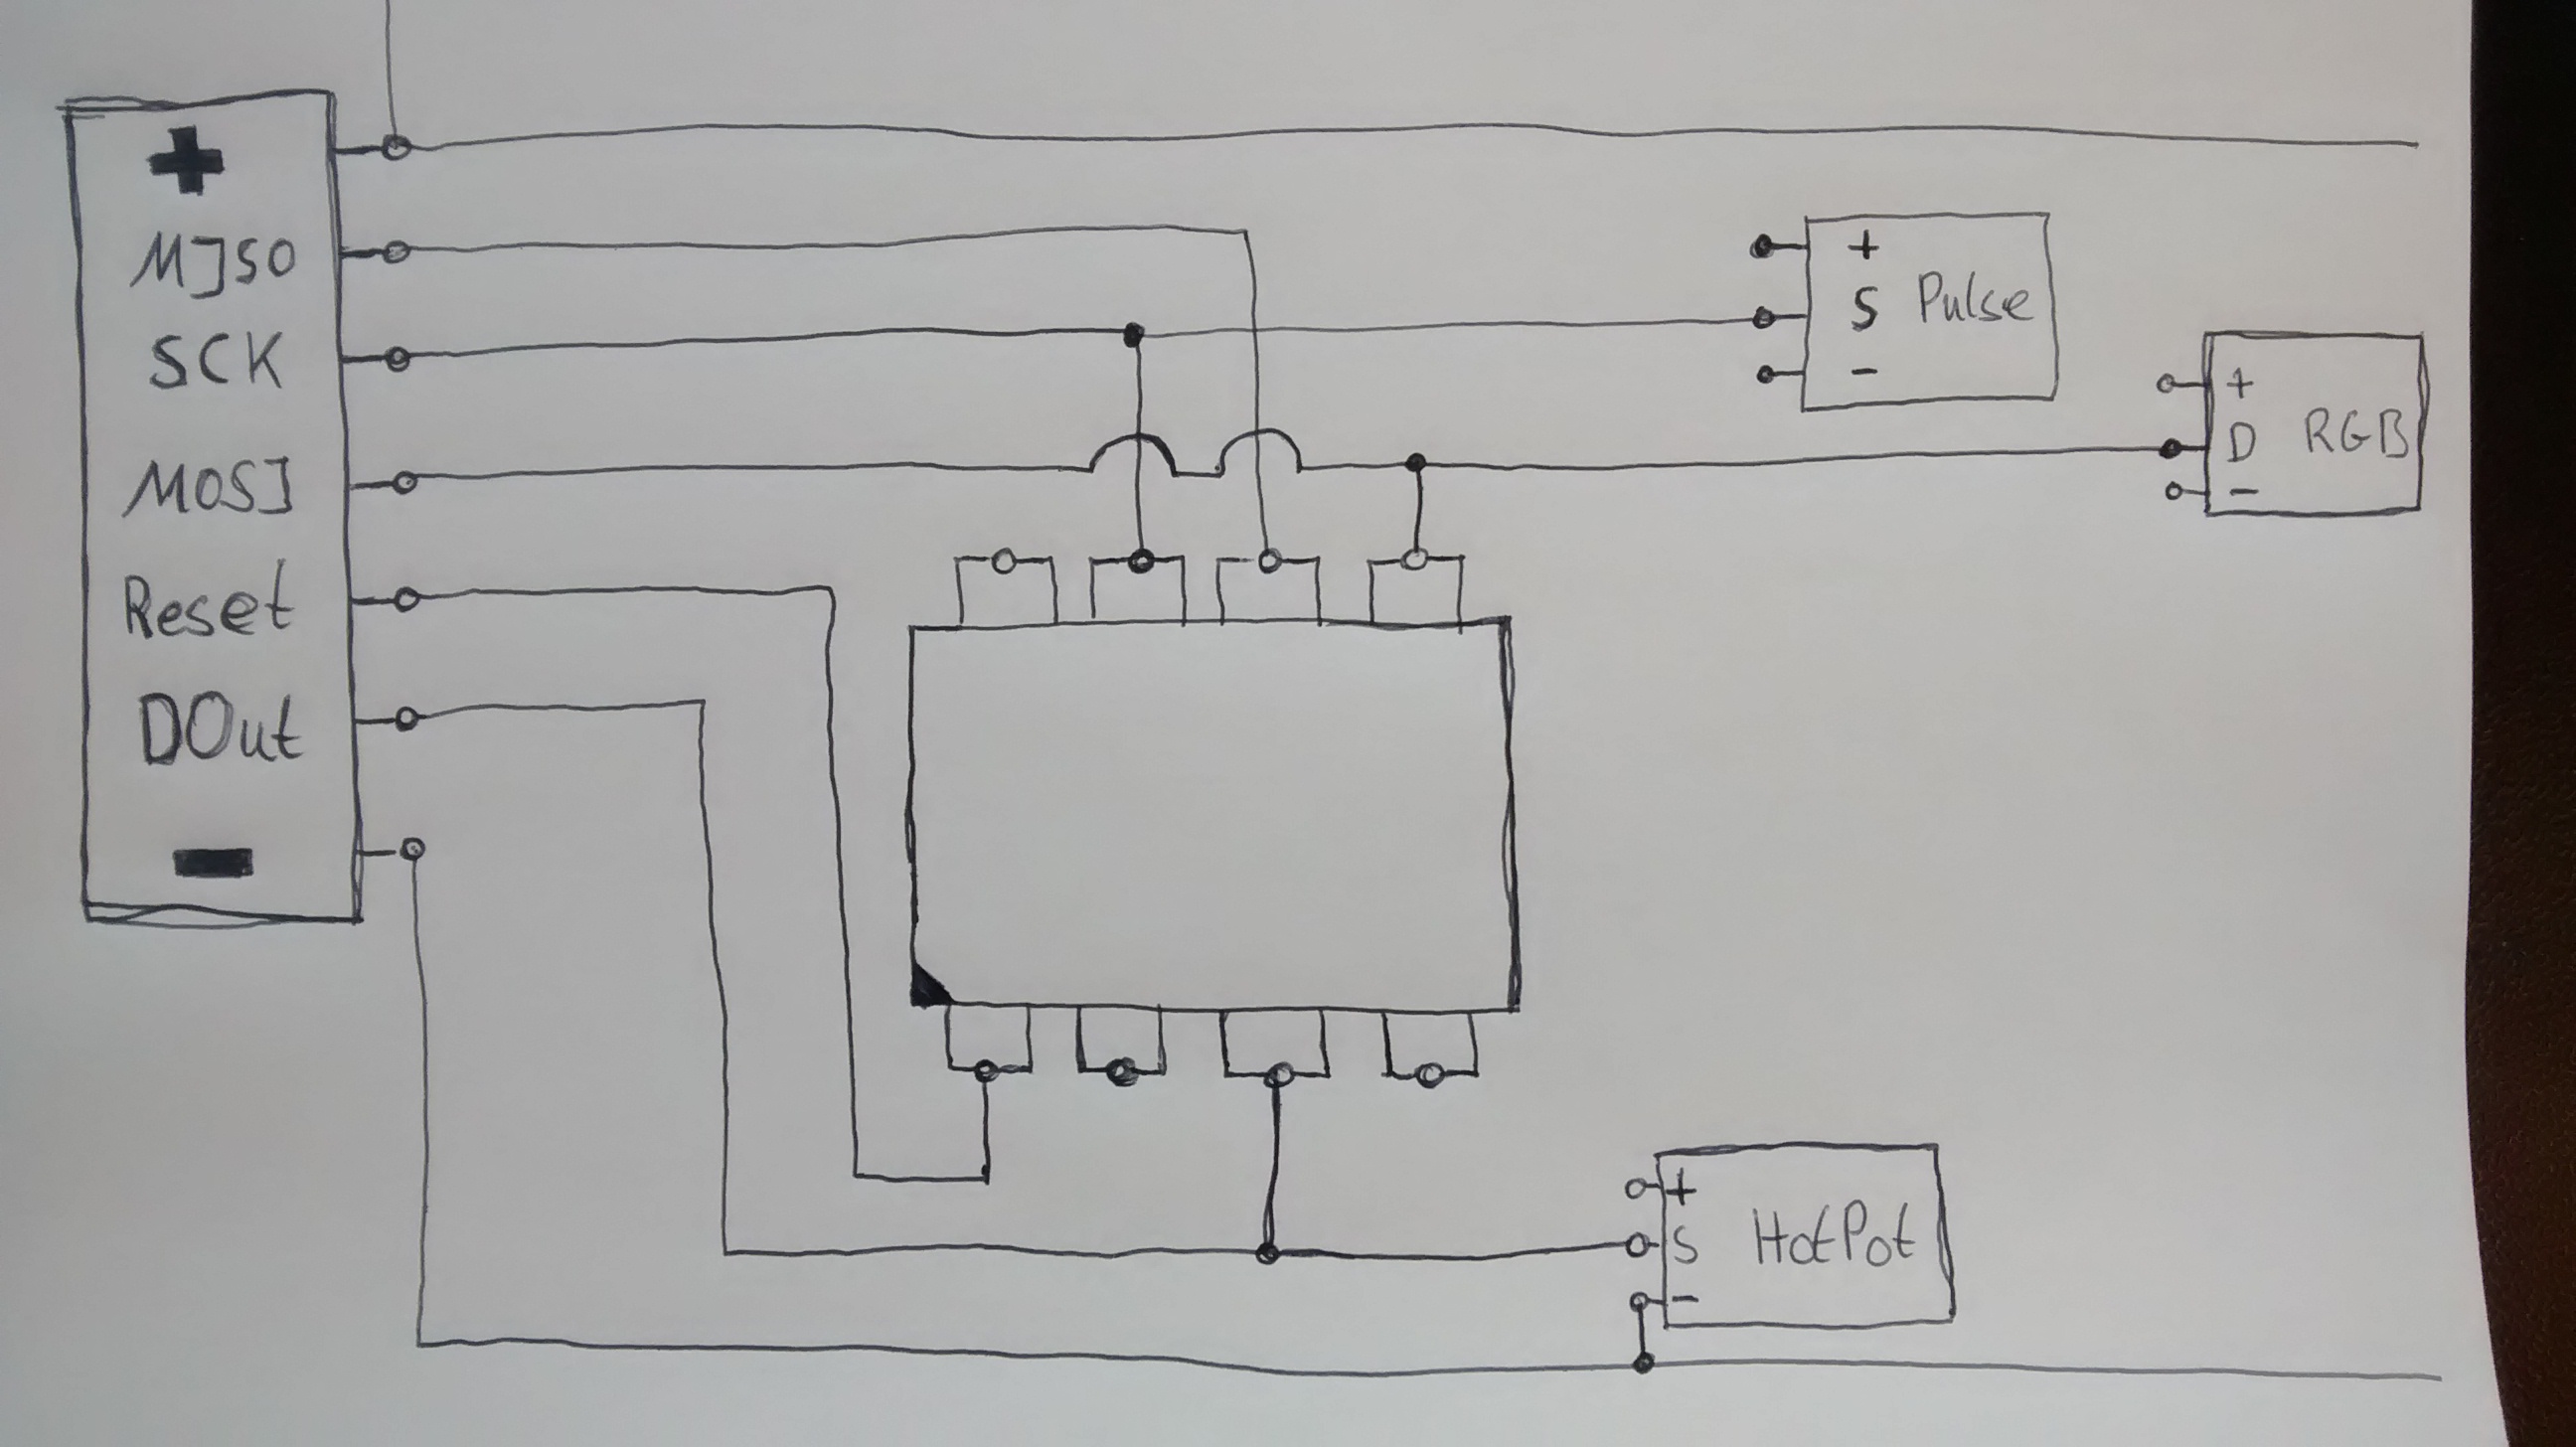 +
MISO
SCK
MOSI
Reset
DOut
-
+
S Pulse
-
+
D RGB
-
+
S HotPot
-